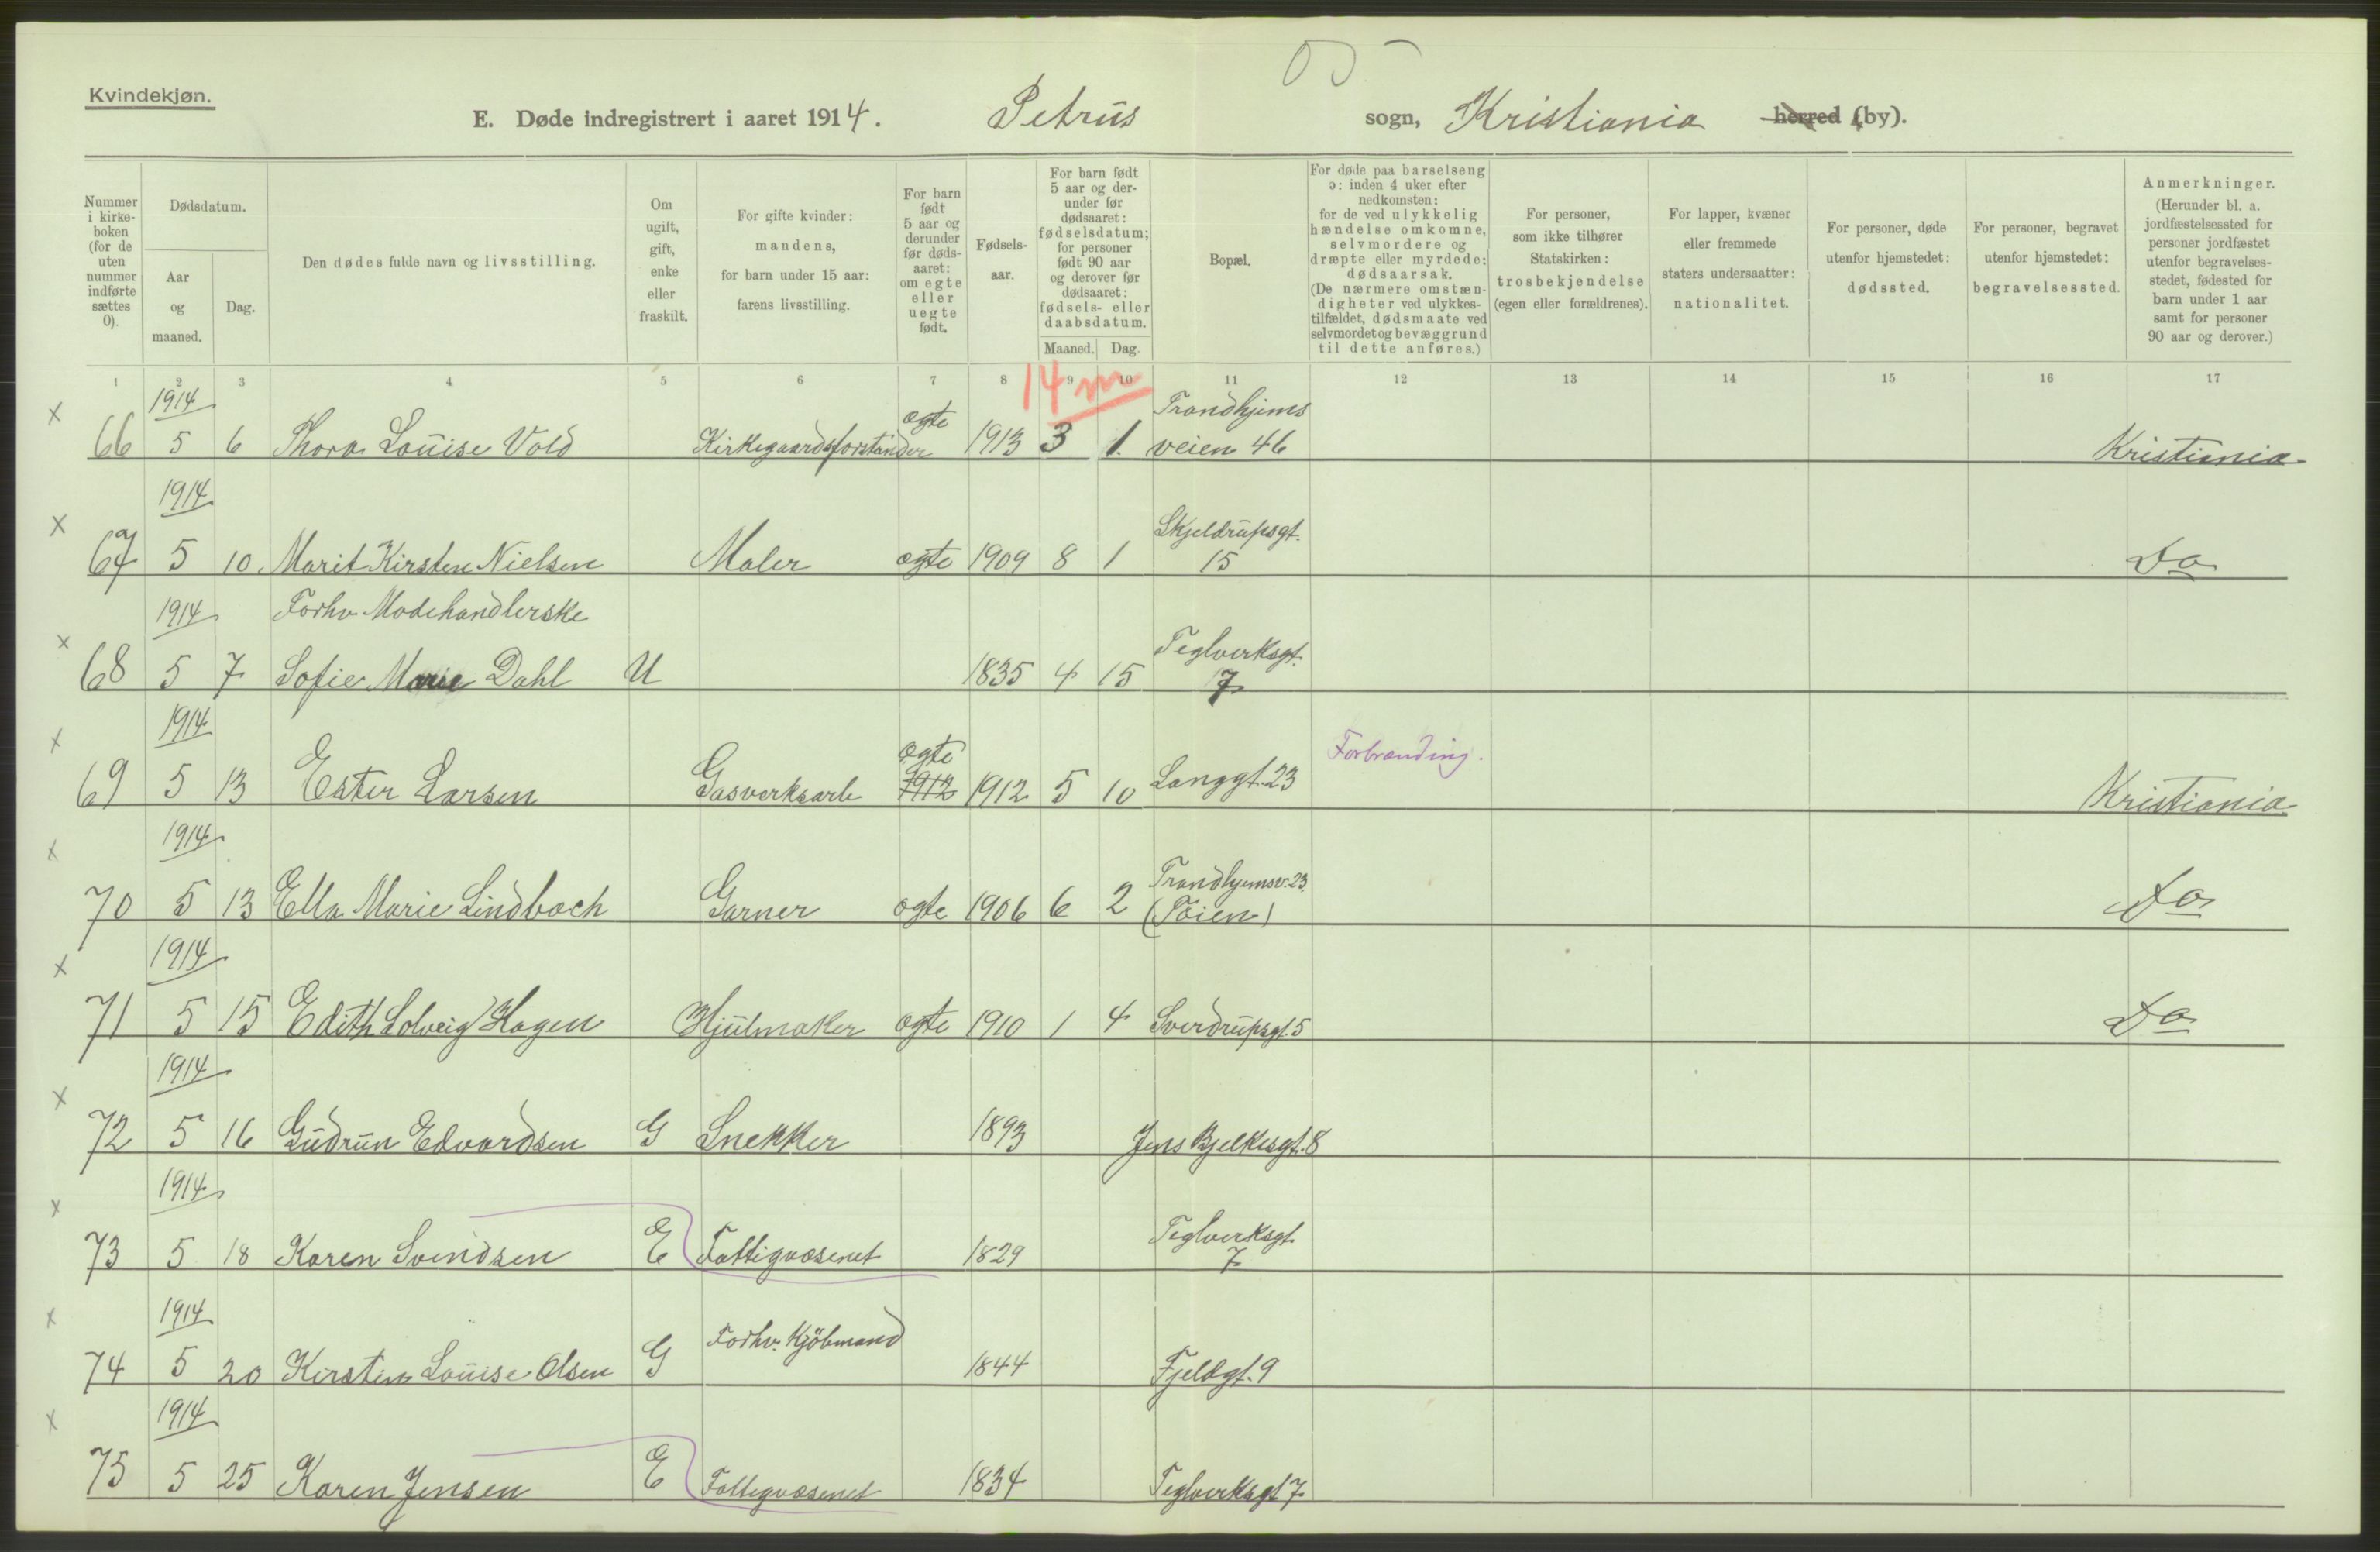 Kvindekjøn.
E. Døde indregistrert i aaret 1914. Petrus sogn, Kristiania herred (by).
Nummer i kirkeboken (for de uten nummer indførte sættes 0).
Dødsdatum.
Aar og maaned.
Dag.
Den dødes fulde navn og livsstilling.
Om ugift, gift, enke eller fraskilt.
For gifte kvinder: mandens, for barn under 15 aar: farens livsstilling.
For barn født 5 aar og derunder før dødsaaret: om egte eller uegte født.
Fødselsaar.
For barn født 5 aar og derunder før dødsaaret: fødselsdatum; for personer født 90 aar og derover før dødsaaret: fødsels- eller daabsdatum.
Maaned. Dag.
Bopæl.
For døde paa barselseng ɔ: inden 4 uker efter nedkomsten: for de ved ulykkelig hændelse omkomne, selvmordere og dræpte eller myrdede: dødsaarsak. (De nærmere omstændigheter ved ulykkestilfældet, dødsmaate ved selvmordet og bevæggrund til dette anføres.)
For personer, som ikke tilhører Statskirken: trosbekjendelse (egen eller forældrenes).
For lapper, kvæner eller fremmede staters undersaatter: nationalitet.
For personer, døde utenfor hjemstedet: dødssted.
For personer, begravet utenfor hjemstedet: begravelsessted.
Anmerkninger. (Herunder bl. a. jordfæstelsessted for personer jordfæstet utenfor begravelsesstedet, fødested for barn under 1 aar samt for personer 90 aar og derover.)
1 2 3 4 5 6 7 8 9 10 11 12 13 14 15 16 17
14 m
1914 ægte Trondhjems
x 66 5 6 Thora Louise Vold Kirkegaardsforstander 1913 3 1. veien 46 Kristiania
1914 Skjeldrupsgt.
x 67 5 10 Marit Kirsten Nielsen Maler ægte 1909 8 1 15 Do
1914 Forhv. Modehandlerske Teglverksgt.
x 68 5 7 Sofie Marie Dahl U 1835 4 15 7
1914 ægte Forbrænding.
x 69 5 13 Ester Larsen Gasverksarb 1912 1912 5 10 Langgt. 23 Kristiania
1914 Trondhjemsv. 23
x 70 5 13 Ella Marie Lindbach Garner ægte 1906 6 2 (Töien) Do
1914
x 71 5 15 Edith Solveig Hagen Hjulmaker ægte 1910 1 4 Sverdrupsgt. 5 Do
1914
x 72 5 16 Gudrun Edvardsen G Snekker 1893 Jens Bjelkesgt. 8
1914 Teglverksgt
x 73 5 18 Karen Svendsen E Fattigvæsenet 1829 7
1914 Forhv. Kjöbmand
x 74 5 20 Kirstine Louise Olsen G 1844 Fjeldgt. 9
1914
x 75 5 25 Karen Jensen E Fattigvæsenet 1834 Teglverksgt 7